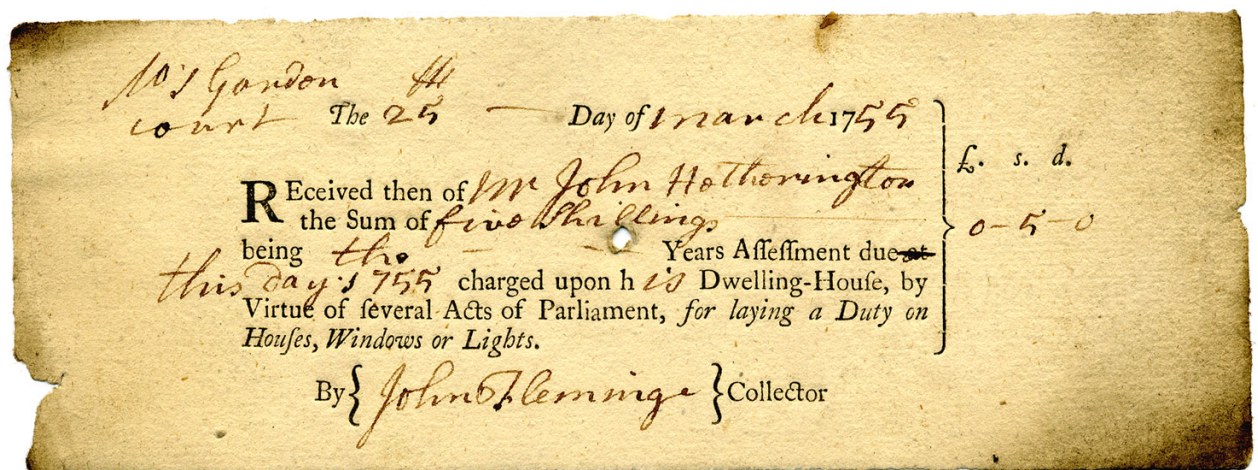 Gordon th
court The 25 Day of march 1755
£. s. d.
REceived then of Mr John Hetherington
the Sum of five shillings 0-5-0
being the Years Aſſeſſment due at
this day 1755 charged upon his Dwelling-Houſe, by
Virtue of ſeveral Acts of Parliament, for laying a Duty on
Houſes, Windows or Lights.
By { John Fleminge } Collector